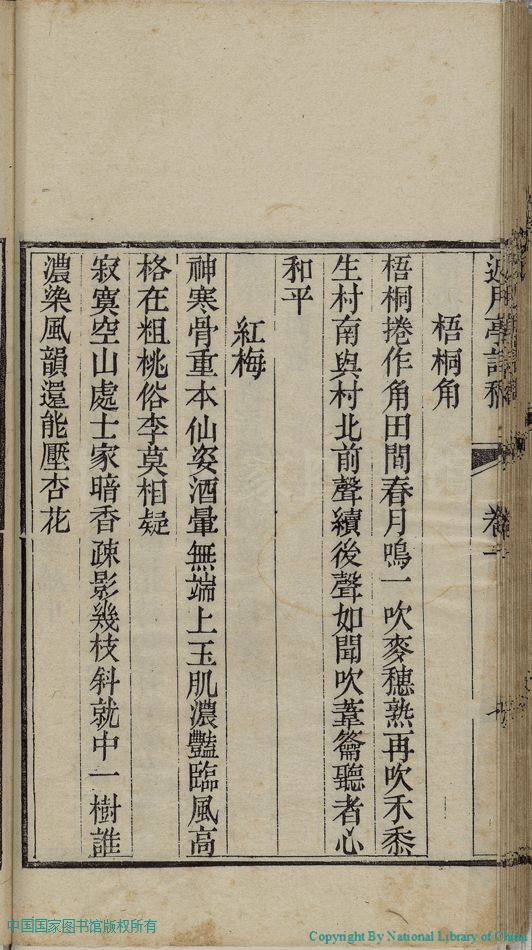 近月亭詩稿 卷一
梧桐角
梧桐捲作角田間春月鳴一吹麥穗熟再吹禾黍
生村南與村北前聲續後聲如聞吹葦籥聽者心
和平
紅梅
神寒骨重本仙姿酒暈無端上玉肌濃豔臨風高
格在粗桃俗李莫相疑
寂寞空山處士家暗香疎影幾枝斜就中一樹誰
濃染風韻還能壓杏花
中国国家图书馆版权所有
Copyright By National Library of China